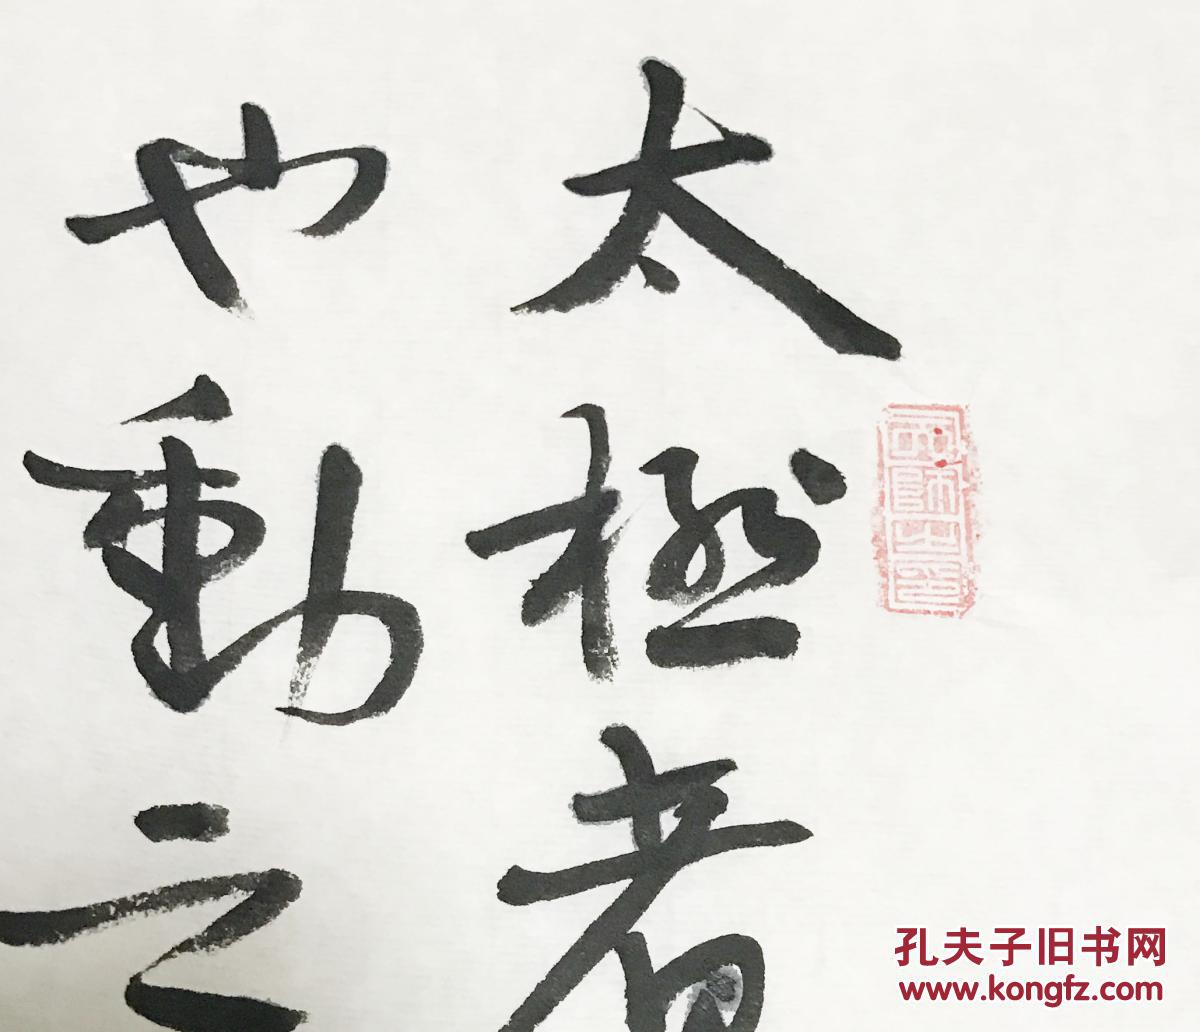 太極者
也動之
孔夫子旧书网
www.kongfz.com